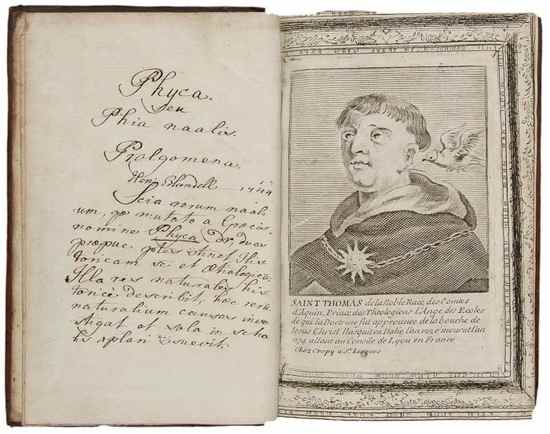 Phyca.
seu
Phia naalis
Prolgomena.
Henr. Blundell 1744
Scia rerum naali
um, qo mutato a Græcis
nomine Phyca dr, duas
propue ptes stinet His
toricam sc. et
Illa res naturalis his
toricè describit, hæc reru
naturalium causas inves
tigat et sola in scho
lis aplari
SAINT THOMAS de la Noble Race des Comtes
d'Aquin, Prince des Theologiens L'Ange des Ecoles
de qui la Doctrine fut approuvée de la bouche de
Iesus Christ. Nâsquit en Italie l'an 1224 et mourut l'an
1274 allant au Concile de Lyon en France
Chez Crepy a St. Iacques